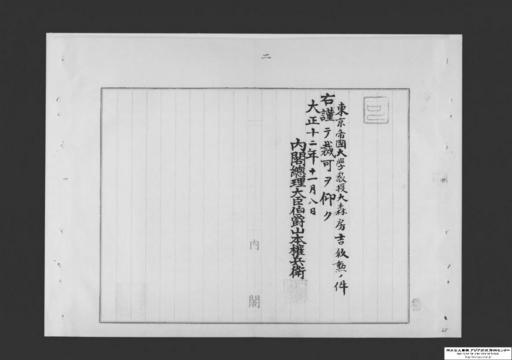 二
東京帝國大學教授大森房吉敍勲ノ件
右謹テ裁可ヲ仰ク
大正十二年十一月八日
内閣總理大臣伯爵山本權兵衛
内閣